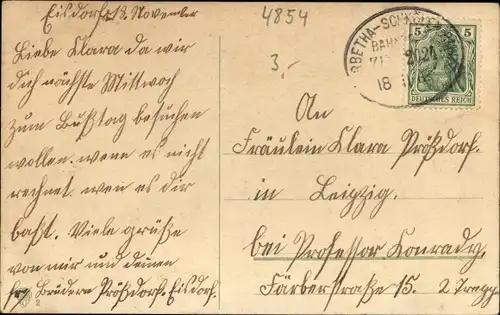 Eisdorf 18 November
4854
Liebe Klara da wir
dich nächste Mittwoch
zum Bußtag besuchen
wollen. wenn es nicht
rechnet. wen es dir
baßt. Viele grüße
von mir und deinen
Brüdern Prößdorf. Eisdorf.
2
3,-
RBETHA-SCH
BAHN
ZUG 2021
18
5 5
DEUTSCHES REICH
An
Fräulein Klara Prößdorf.
in Leipzig.
bei Professor Konrady.
Färberstraße 15. 2 Trepp